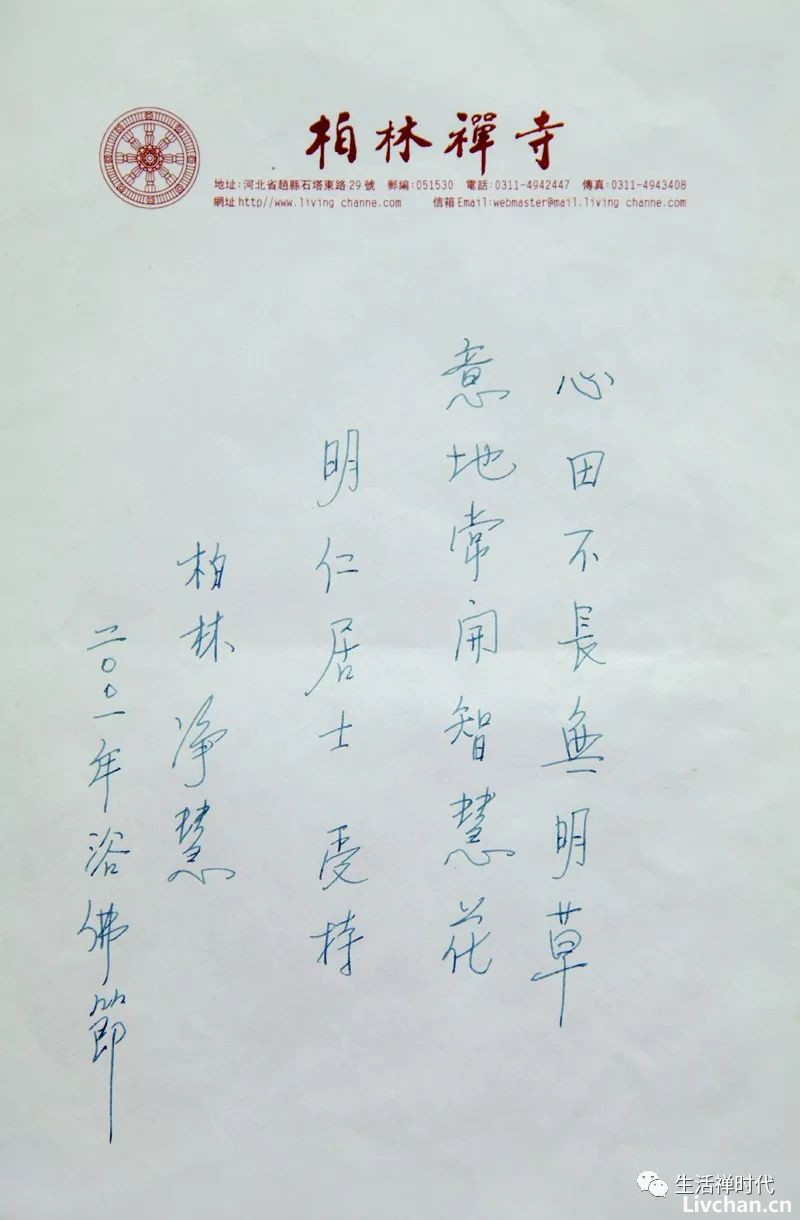 柏林禪寺
地址:河北省趙縣石塔東路29號 郵編:051530 電話:0311-4942447 傳真:0311-4943408
網址http//www.living channe.com 信箱Email:webmaster@mail.living channe.com
心田不長無明草
意地常開智慧花
明仁居士 受持
柏林淨慧
二〇〇一年浴佛節
生活禅时代
Livchan.cn